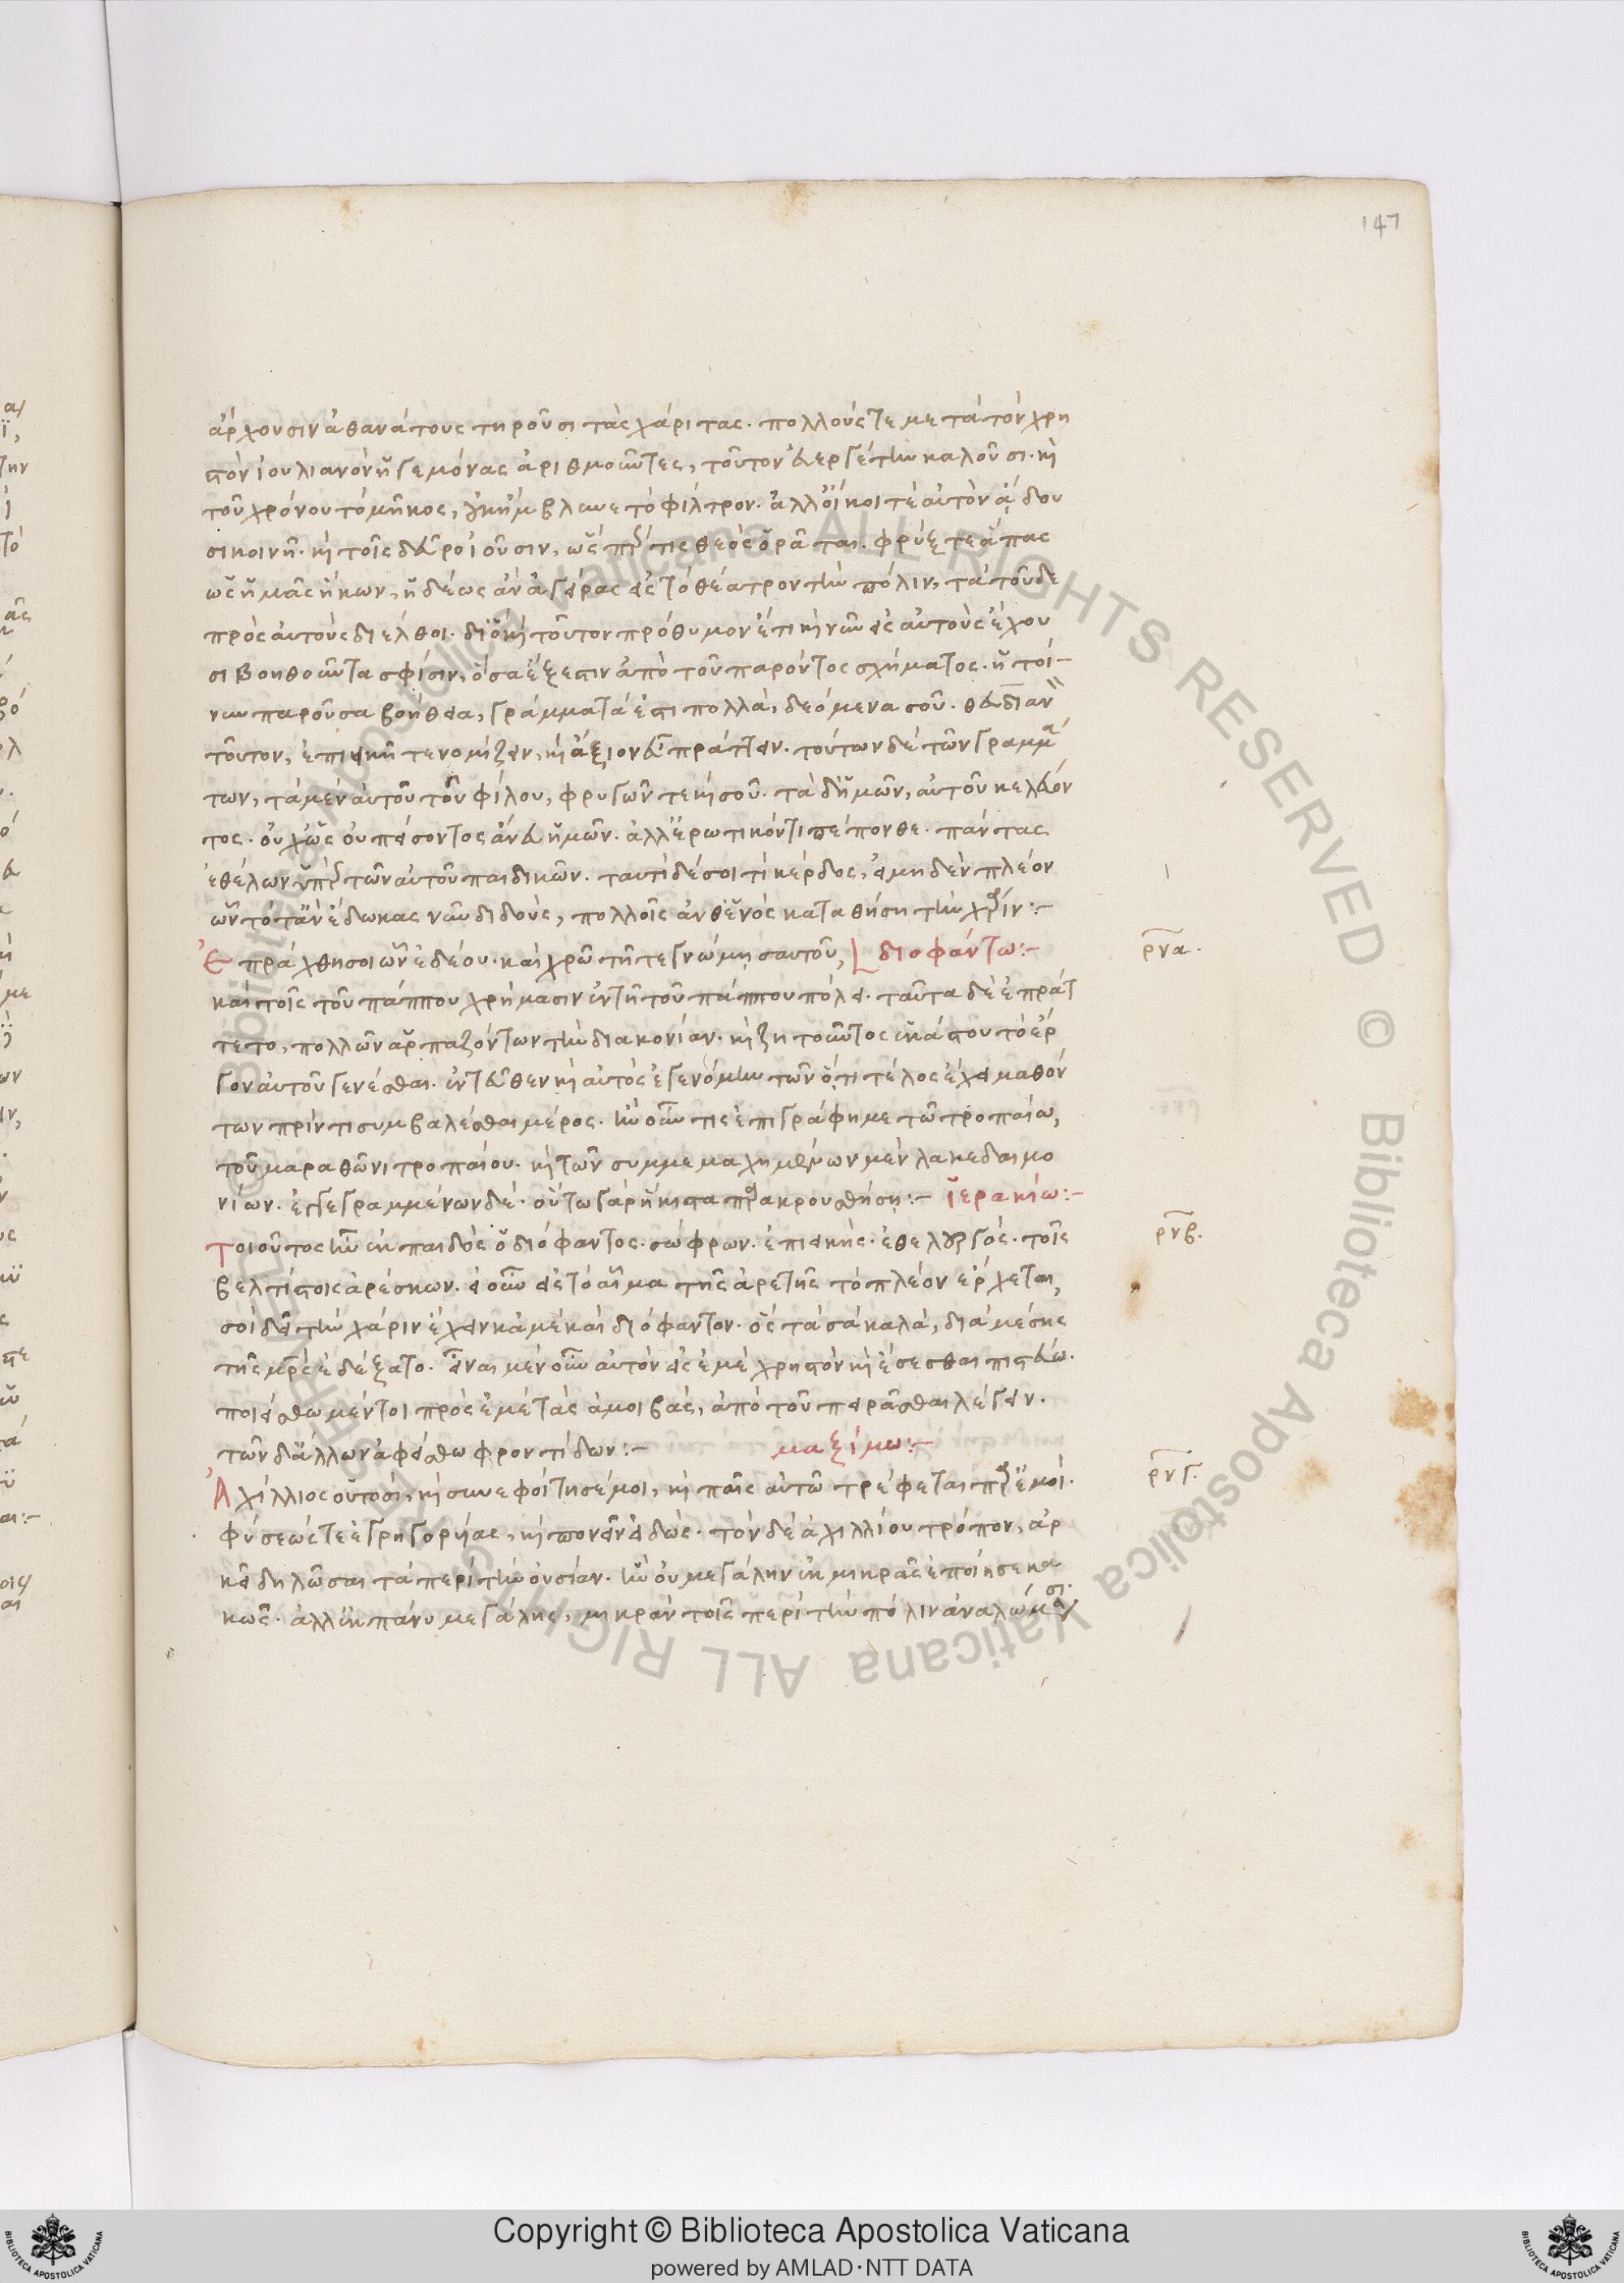 147
ἄρχουσιν ἀθανάτους τηροῦσι τὰς χάριτας. πολλούς τε μετὰ τὸν χρη
στὸν ἰουλιανὸν ἡγεμόνας ἀριθμοῦντες, τοῦτον εὐεργέτην καλοῦσι. καὶ
τοῦ χρόνου τὸ μῆκος, οὐκ ἤμβλυνε τὸ φίλτρον. ἀλλ' οἴκοι τὲ αὐτὸν ᾄδου
σι κοινῆ. καὶ τοῖς δεῦρο ἰοῦσιν, ὥσπερ τις θεὸς ὁρᾶται. φρύξ τε ἅπας
ὡς ἡμᾶς ἥκων, ἡδέως ἂν ἀγείρας εἰς τὸ θέατρον τὴν πόλιν, τὰ τοῦδε
πρὸς αὐτοὺς διέλθοι. διὸ καὶ τοῦτον πρόθυμον ἔτι καὶ νῦν εἰς αὐτοὺς ἔχου
σι βοηθοῦντα σφίσιν, ὅσα ἔξεστιν ἀπὸ τοῦ παρόντος σχήματος. ἡ τοί-
νυν παροῦσα βοήθεια, γράμματά ἐστι πολλὰ, δεόμενα σοῦ.
τοῦτον, ἐπιεικῆ τε νομίζειν, καὶ ἄξιον εὖ πράττειν. τούτων δὲ τῶν γραμμά
των, τὰ μὲν αὐτοῦ τοῦ φίλου, φρυγῶν τε καὶ σοῦ. τὰ δ' ἡμῶν, αὐτοῦ κελεύον
τος. οὐχ ὡς οὐ πείσοντος ἄνευ ἡμῶν. ἀλλ' ἐρωτικόν τι πέπονθε. πάντας
ἐθέλων ὑπὲρ τῶν αὐτοῦ παιδικῶν. ταυτὶ δέ σοι τί κέρδος, εἰ μηδὲν πλέον
ὧν τότ' ἂν ἔδωκας νῦν διδοὺς, πολλοῖς ἀνθ' ἑνὸς καταθήσῃ τὴν χάριν:-
Ἐπράχθη σοι ὧν ἐδέου. καὶ χρῶ τῆ τε γνώμῃ σαυτοῦ, διοφάντω:- ρνα.
καὶ τοῖς τοῦ πάππου χρήμασιν ἐν τῆ τοῦ πάππου πόλει. ταῦτα δὲ ἐπράτ
τετο, πολλῶν ἁρπαζόντων τὴν διακονίαν. καὶ ζητοῦντος ἑκάστου τὸ ἔρ
γον αὐτοῦ γενέσθαι. ἐντεῦθεν καὶ αὐτὸς ἐγενόμην τῶν ὅ,τι τέλος ἔχει μαθόν
των πρίν τι συμβαλέσθαι μέρος. ἢν οὖν τις ἐπιγράφη με τῶ τροπαίω,
τοῦ μαραθῶνι τροπαίου. καὶ τῶν συμμεμαχημένων μὲν λακεδαιμο
νίων. ἐγγεγραμμένων δέ. οὕτω γὰρ ἥκιστα παρακρουσθήσῃ:- ἱερακίω:-
Τοιοῦτος ἦν ἐκ παιδὸς ὁ διόφαντος. σώφρων. ἐπιεικής. ἐθελουργός. τοῖς ρνβ.
βελτίστοις ἀρέσκων. εἰ οὖν εἰς τὸ αἷμα τῆς ἀρετῆς τὸ πλέον ἔρχεται,
σοὶ δεῖ τὴν χάριν ἔχειν κἀμὲ καὶ διόφαντον. ὃς τὰ σὰ καλὰ, διὰ μέσης
τῆς μητρὸς ἐδέξατο. εἶναι μὲν οὖν αὐτὸν εἰς ἐμὲ χρηστὸν καὶ ἔσεσθαι πιστεύω.
ποιείσθω μέντοι πρὸς ἐμὲ τὰς ἀμοιβὰς, ἀπὸ τοῦ πειρᾶσθαι λέγειν.
τῶν δ' ἄλλων ἀφείσθω φροντίδων:- μαξίμω:-
Ἀχίλλιος οὑτοσὶ, καὶ συνεφοίτησέ μοι, καὶ παῖς αὐτῶ τρέφεται παρ' ἐμοί. ρνγ.
φύσεώς τε ἐγρηγορυίας, καὶ πονεῖν εἰδώς. τὸν δὲ ἀχιλλίου τρόπον, ἀρ
κεῖ δηλῶσαι τὰ περὶ τὴν οὐσίαν. ἣν οὐ μεγάλην ἐκ μικρᾶς ἐποίησε κα
κῶς. ἀλλ' ἐκ πάνυ μεγάλης, μικρὰν τοῖς περὶ τὴν πόλιν ἀναλώμασι.
© Biblioteca Apostolica Vaticana ALL RIGHTS RESERVED
Copyright © Biblioteca Apostolica Vaticana
powered by AMLAD·NTT DATA